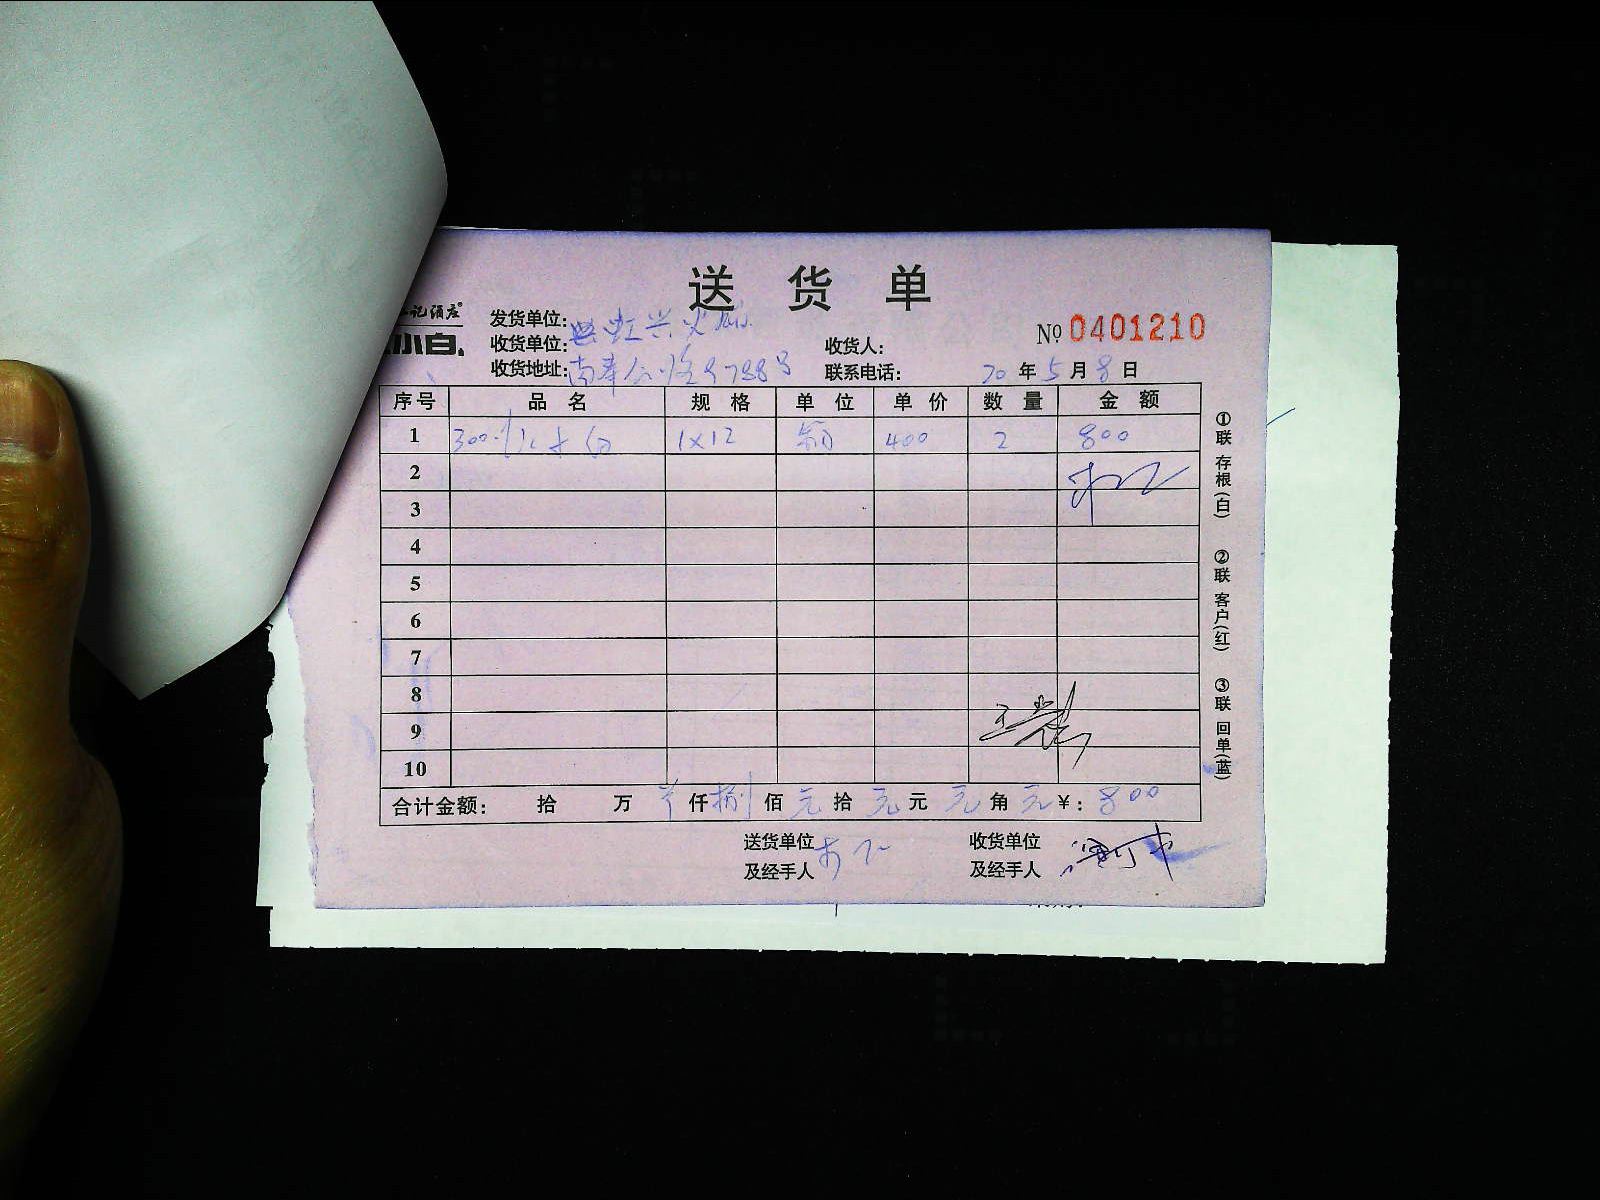 送 货 单
记酒庄®
小白.
发货单位:
收货单位:
收货人:
No 0401210
收货地址: 南奉公路9788号
联系电话:
20 年 5 月 8 日
序号 品名 规格 单位 单价 数量 金额
1 300 小白 1X12 箱 400 2 800
2
3
4
5
6
7
8
9
10
合计金额: 拾 万 仟 捌 佰 元 拾 元 元 元 角 元 ¥: 800
送货单位
及经手人
收货单位
及经手人
①联 存根(白)
②联 客户(红)
③联 回单(蓝)